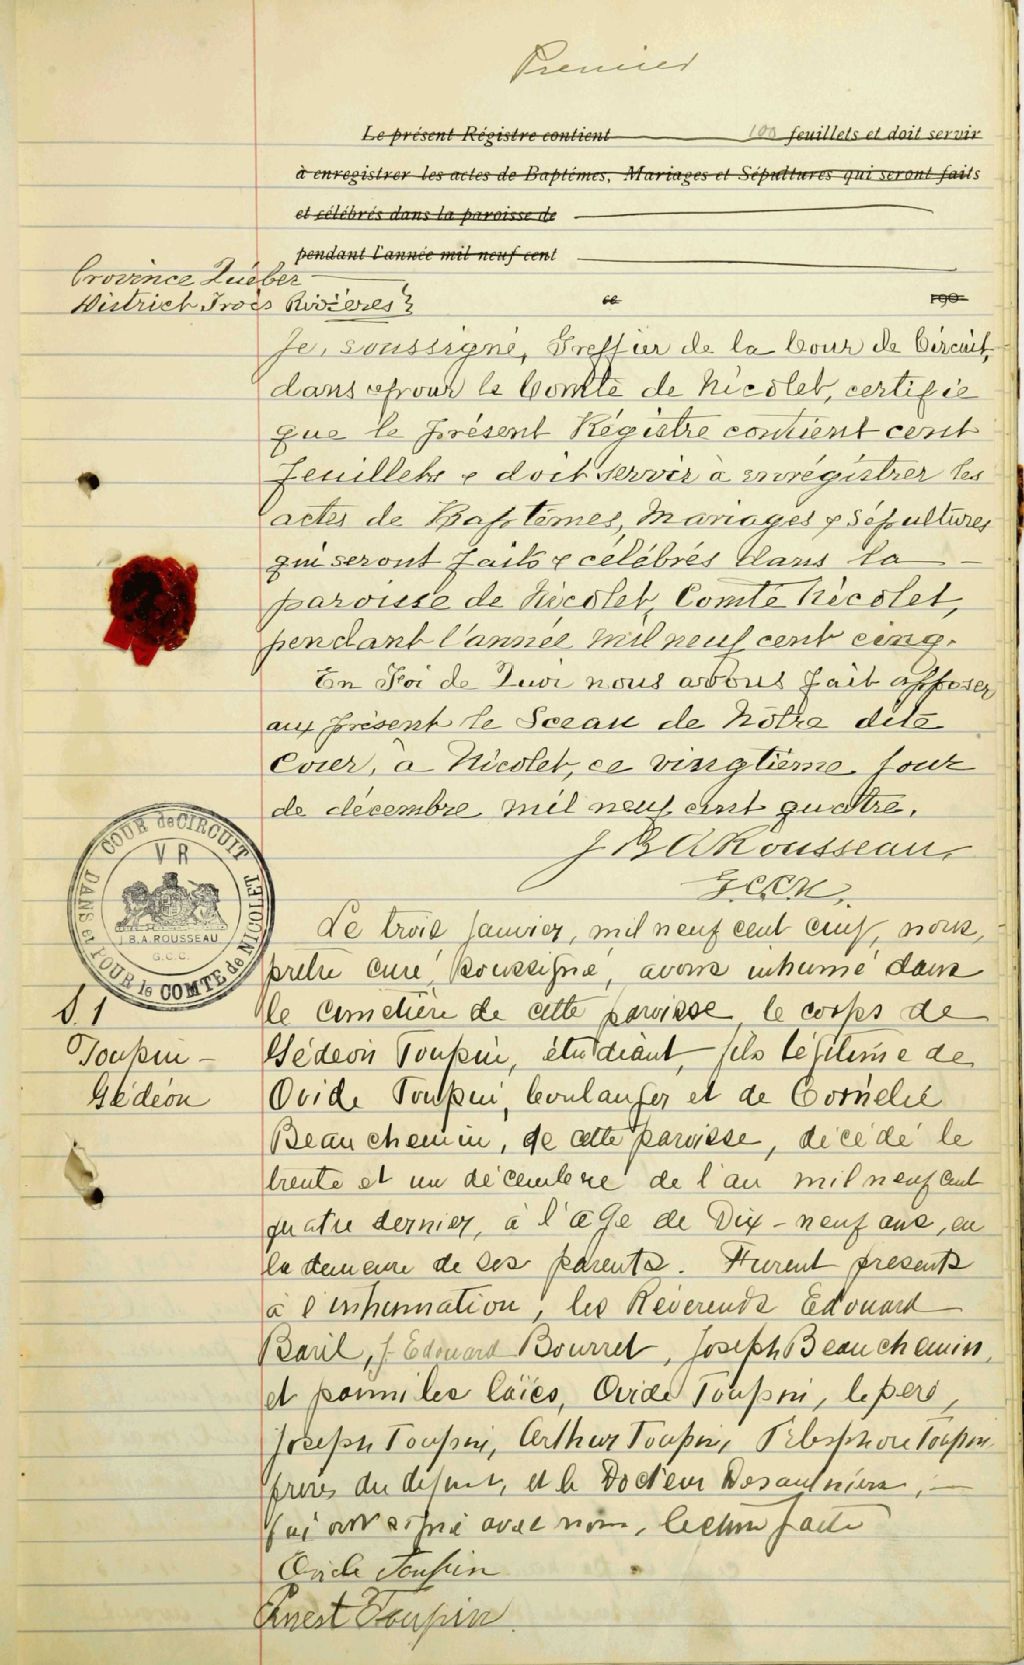 Premier
Le présent Régistre contient 100 feuillets et doit servir
à enregistrer les actes de Baptêmes, Mariages et Sépultures qui seront faits
et célébrés dans la paroisse de
pendant l'année mil neuf cent
Province Québec
District Trois Rivières }
ce 190
Je, soussigné, Greffier de la Cour de Circuit,
dans & pour le Comté de Nicolet, certifie
que le présent Régistre contient cent
feuillets & doit servir à enrégistrer les
actes de Baptêmes, Mariages & Sépultures
qui seront faits & célébrés dans la
paroisse de Nicolet, Comté Nicolet,
pendant l'année mil neuf cent cinq.
En Foi de Quoi nous avons fait apposer
aux présent le Sceau de Notre dite
Cour, à Nicolet, ce vingtième jour
de décembre mil neuf cent quatre.
J B A Rousseau,
G.C.C.N.
COUR de CIRCUIT
DANS et POUR le COMTE de NICOLET
V R
J.B.A. ROUSSEAU
G.C.C.
S. 1
Toupin –
Gédéon
Le trois Janvier, mil neuf cent cinq, nous,
prêtre curé, soussigné, avons inhumé dans
le cimetière de cette paroisse, le corps de
Gédéon Toupin, étudiant, fils légitime de
Ovide Toupin, boulanger et de Cornélie
Beauchemin, de cette paroisse, décédé le
trente et un décembre de l'an mil neuf cent
quatre dernier, à l'âge de Dix-neuf ans, en
la demeure de ses parents. Furent présents
à l'inhumation, les Révérends Edouard
Baril, J. Edouard Bourret, Joseph Beauchemin,
et parmi les laïcs, Ovide Toupin, le père,
Joseph Toupin, Arthur Toupin, Télesphore Toupin
frères du défunt, et le Docteur Desaulniers, –
qui ont signé avec nous, lecture faite
Ovide Toupin
Ernest Toupin.